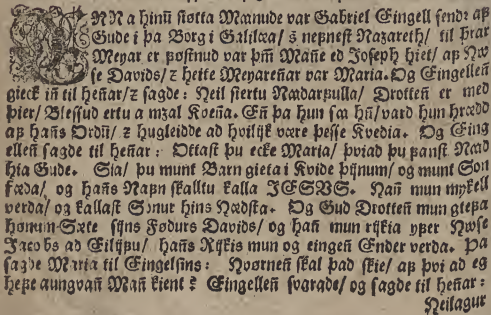 NN a hinū siøtta Mænude var Gabriel Eingell sendr aff
Gude i þa Borg i Galilæa/ s nefnest Nazareth/ til þrar
Meyar er føstnud var þm̄ Mañe ed Joseph hiet/ aff Nw
se Davids/ z heite Meyareñar var Maria. Og Eingelleñ
gieck iñ til heñar/ z sagde: Heil siertu Nadarfulla/ Drotteñ er med
þier/ Blessud ertu a mzal Kveña. Eñ þa hun sa hñ/ vard hun hrædd
aff hañs Ordū/ z hugleidde ad hvilijk være þesse Kvedia. Og Eing
elleñ sagde til heñar: Ottast þu ecke Maria/ þviad þu fanst Nad
hia Gude. Sia/ þu munt Barn gieta i Kvide þijnum/ og munt Son
fæda/ og hañs Nafn skalltu kalla JESVS. Hañ mun mykell
verda/ og kallast Sonur hins Hædsta. Og Gud Drotteñ mun gieffa
hønum Sæte sijns Fødurs Davids/ og hañ mun rijkia yfer Hwse
Jacobs ad Eilijffu/ hañs Rijkis mun og eingeñ Ender verda. Þa
sagde Maria til Eingelsins: Hvørneñ skal þad skie/ aff þvi ad eg
heffe aungvañ Mañ kient? Eingelleñ svarade/ og sagde til heñar:
Heilagur